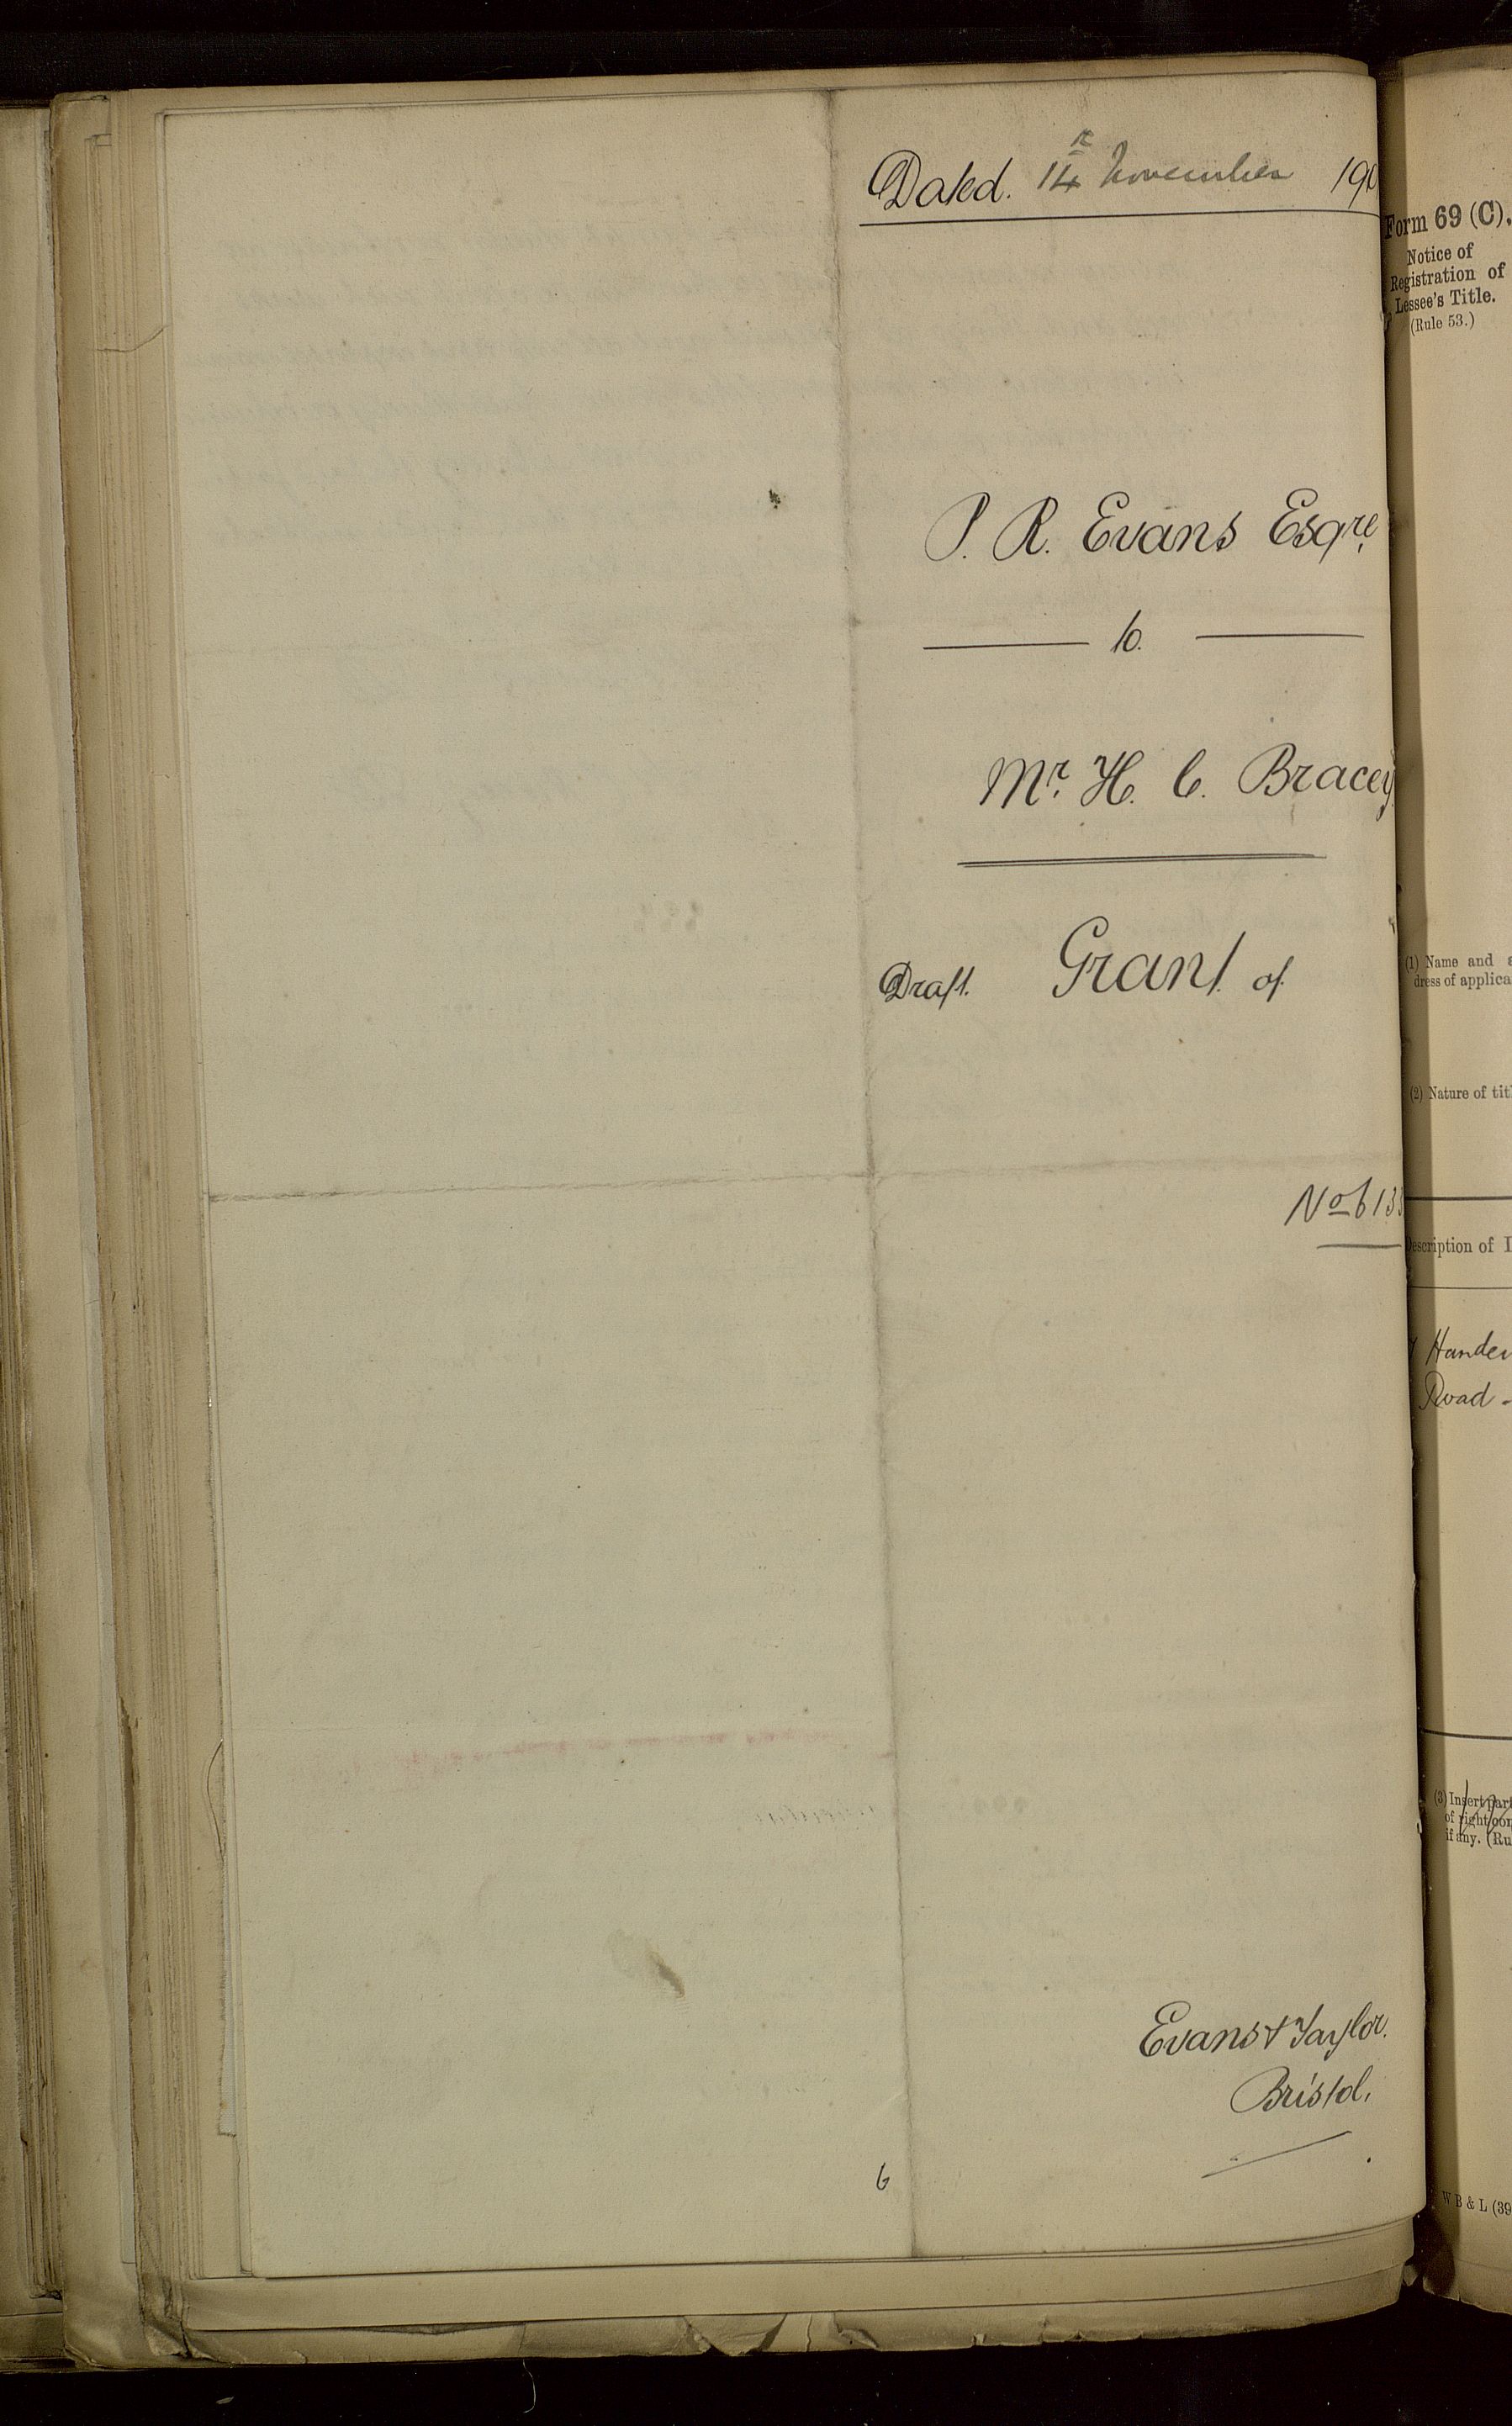 Dated. 14th November 190
P. R. Evans Esqre.
to
Mr. H. C. Bracey
Draft Grant of
No 613
Evans & Taylor.
Bristol.
6
Form 69 (C).
Notice of
Registration of
Lessee's Title.
(Rule 53.)
(1) Name and
dress of applica
(2) Nature of tit
Description of
Road -
(3) Insert part
of right
if any. (Ru
W B & L (39